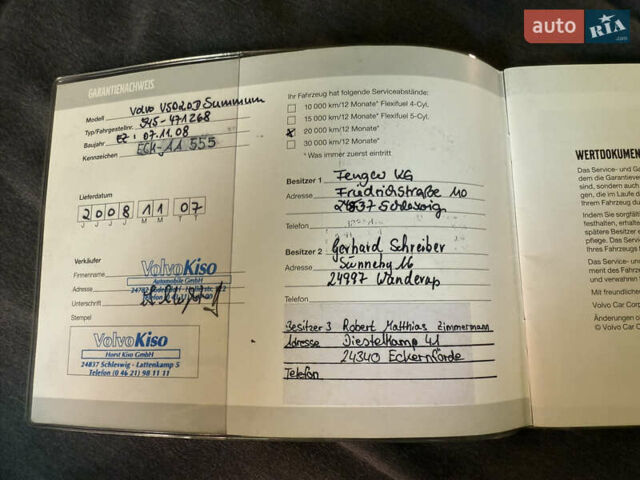 auto RIA.com
GARANTIENACHWEIS
Modell Volvo V50 2.0D Summum
Typ/Fahrgestellnr. 545-471268
Baujahr EZ: 07.11.08
Kennzeichen ECK-AA 555
Lieferdatum
2 0 0 8 1 1 0 7
J J J J M M T T
Verkäufer
Firmenname VolvoKiso
Automobile GmbH
Adresse
Unterschrift
Stempel
VolvoKiso
Horst Kiso GmbH
24837 Schleswig - Lattenkamp 5
Telefon (0 46 21) 98 11 11
Ihr Fahrzeug hat folgende Serviceabstände:
10 000 km/12 Monate* Flexifuel 4-Cyl.
15 000 km/12 Monate* Flexifuel 5-Cyl.
x 20 000 km/12 Monate*
30 000 km/12 Monate*
*Was immer zuerst eintritt
Besitzer 1 Fenger KG
Adresse Friedrichstraße 110
24837 Schleswig
Telefon
Besitzer 2 Gerhard Schreiber
Adresse Sünneby 16
24997 Wanderup
Telefon
Besitzer 3 Robert Matthias Zimmermann
Adresse Diestelkamp 41
24340 Eckernförde
Telefon
WERTDOKUMEN
Das Service- und Ga
dem die Garantiever
sind, sondern auch
den, die im Laufe d
Ihrem Fahrzeug du
Indem Sie sorgfält
festhalten, erhalten
spätere Besitzer ei
pflege. Das Servic
Ihres Fahrzeugs b
Das Service- un
ment des Fahrze
und verwahren s
Mit freundlicher
Volvo Car Corp
Änderungen o
© Volvo Car C